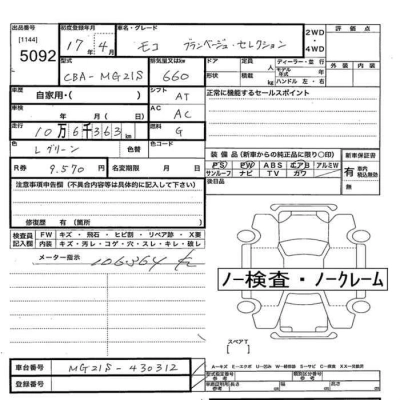 出品番号 初度登録年月 車名・グレード 2WD・4WD 評価点
[1144] 17年4月 モコ ブランベージュ・セレクション 外装 内装
5092
型式 排気量又はkw ドア 人
CBA-MG21S 660 形状
ディーラー・並行
モデル年式
ハンドル 左・右
車歴 シフト 正常に機能するセールスポイント
自家用・( ) AT
車検 AC
年 月( 日) AC
走行 燃料
10万6千363 km G
色 色替 色コード
Lグリーン
装備品(新車からの純正品に限り○印) 新車保証書
PS PW ABS エアB アルミW 有
サンルーフ ナビ TV カワ 車内積込無効
R券 9.570円 名変期限 月 日 後日品
注意事項申告欄(不具合内容等は具体的に記入して下さい)
修復歴 有(箇所 )
検査員記入欄 FW キズ・飛石・ヒビ割・リペア跡・X要
内装 キズ・汚レ・コゲ・穴・スレ・キレ・破レ
メーター指示 106364 km
ノー検査・ノークレーム
スペアT
車台番号 MG21S-430312
登録番号
A-キズ E-エクボ U-凹み W-補修跡 S-サビ C-腐食 XX-交換済
型式指定番号 類別区分番号
長さ 幅 高さ